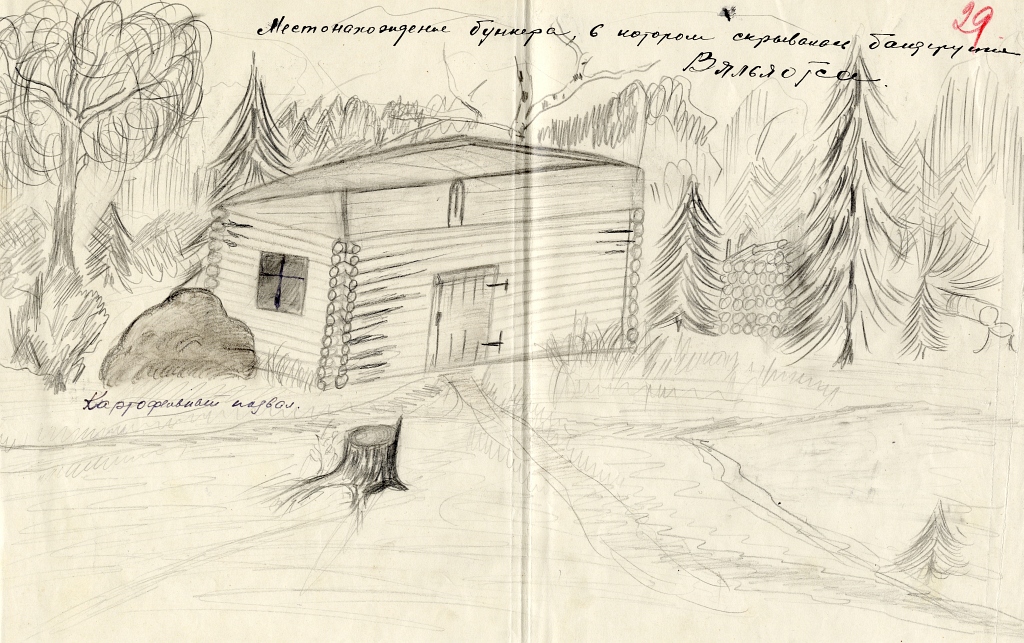 29
Местонахождение бункера, в котором скрывалась бандгруппа
Вяльяотса.
Картофельный подвал.